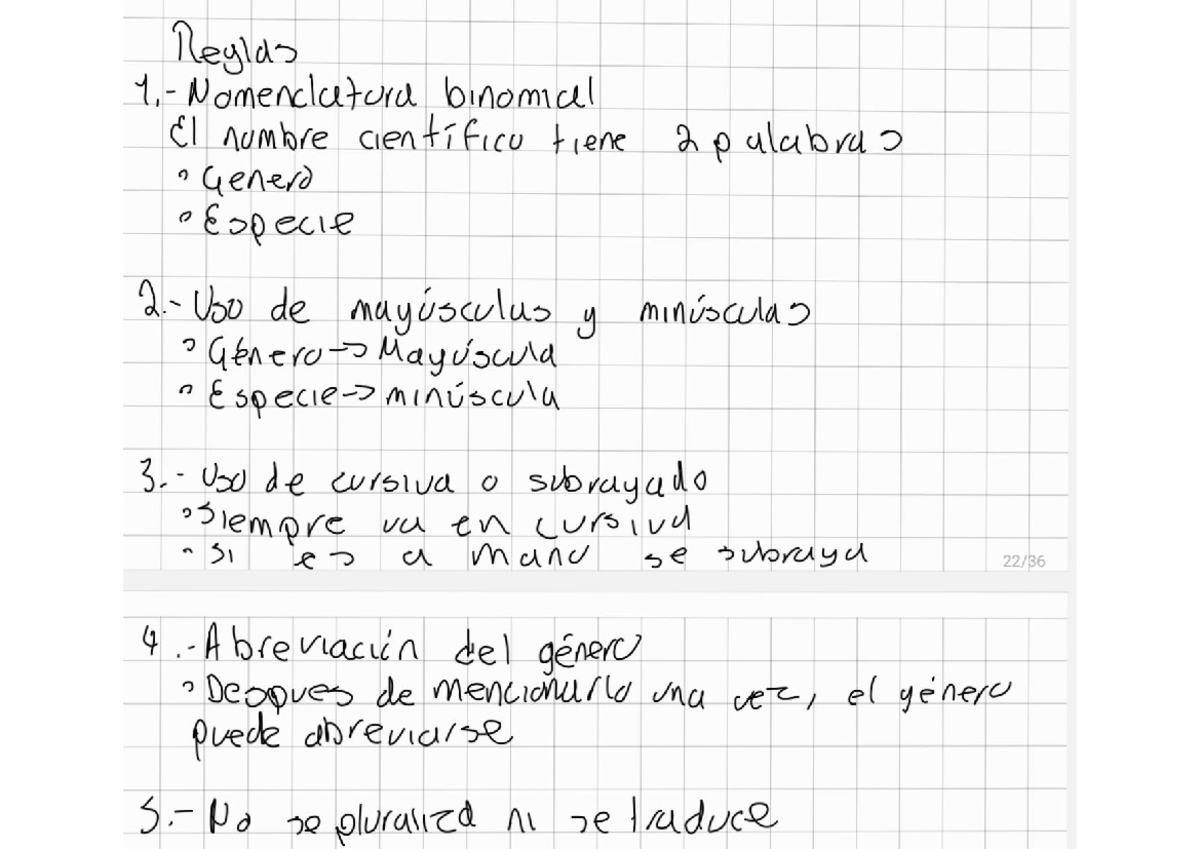 Reglas
1.- Nomenclatura binomial
El nombre científico tiene 2 palabras
° Genero
° Especie
2.- Uso de mayúsculas y minúsculas
° Género -> Mayúscula
° Especie -> minúscula
3.- Uso de cursiva o subrayado
° Siempre va en cursiva
° Si es a mano se subraya
22/36
4.- Abreviación del género
° Despues de mencionarlo una vez, el género
puede abreviarse
5.- No se pluraliza ni se traduce